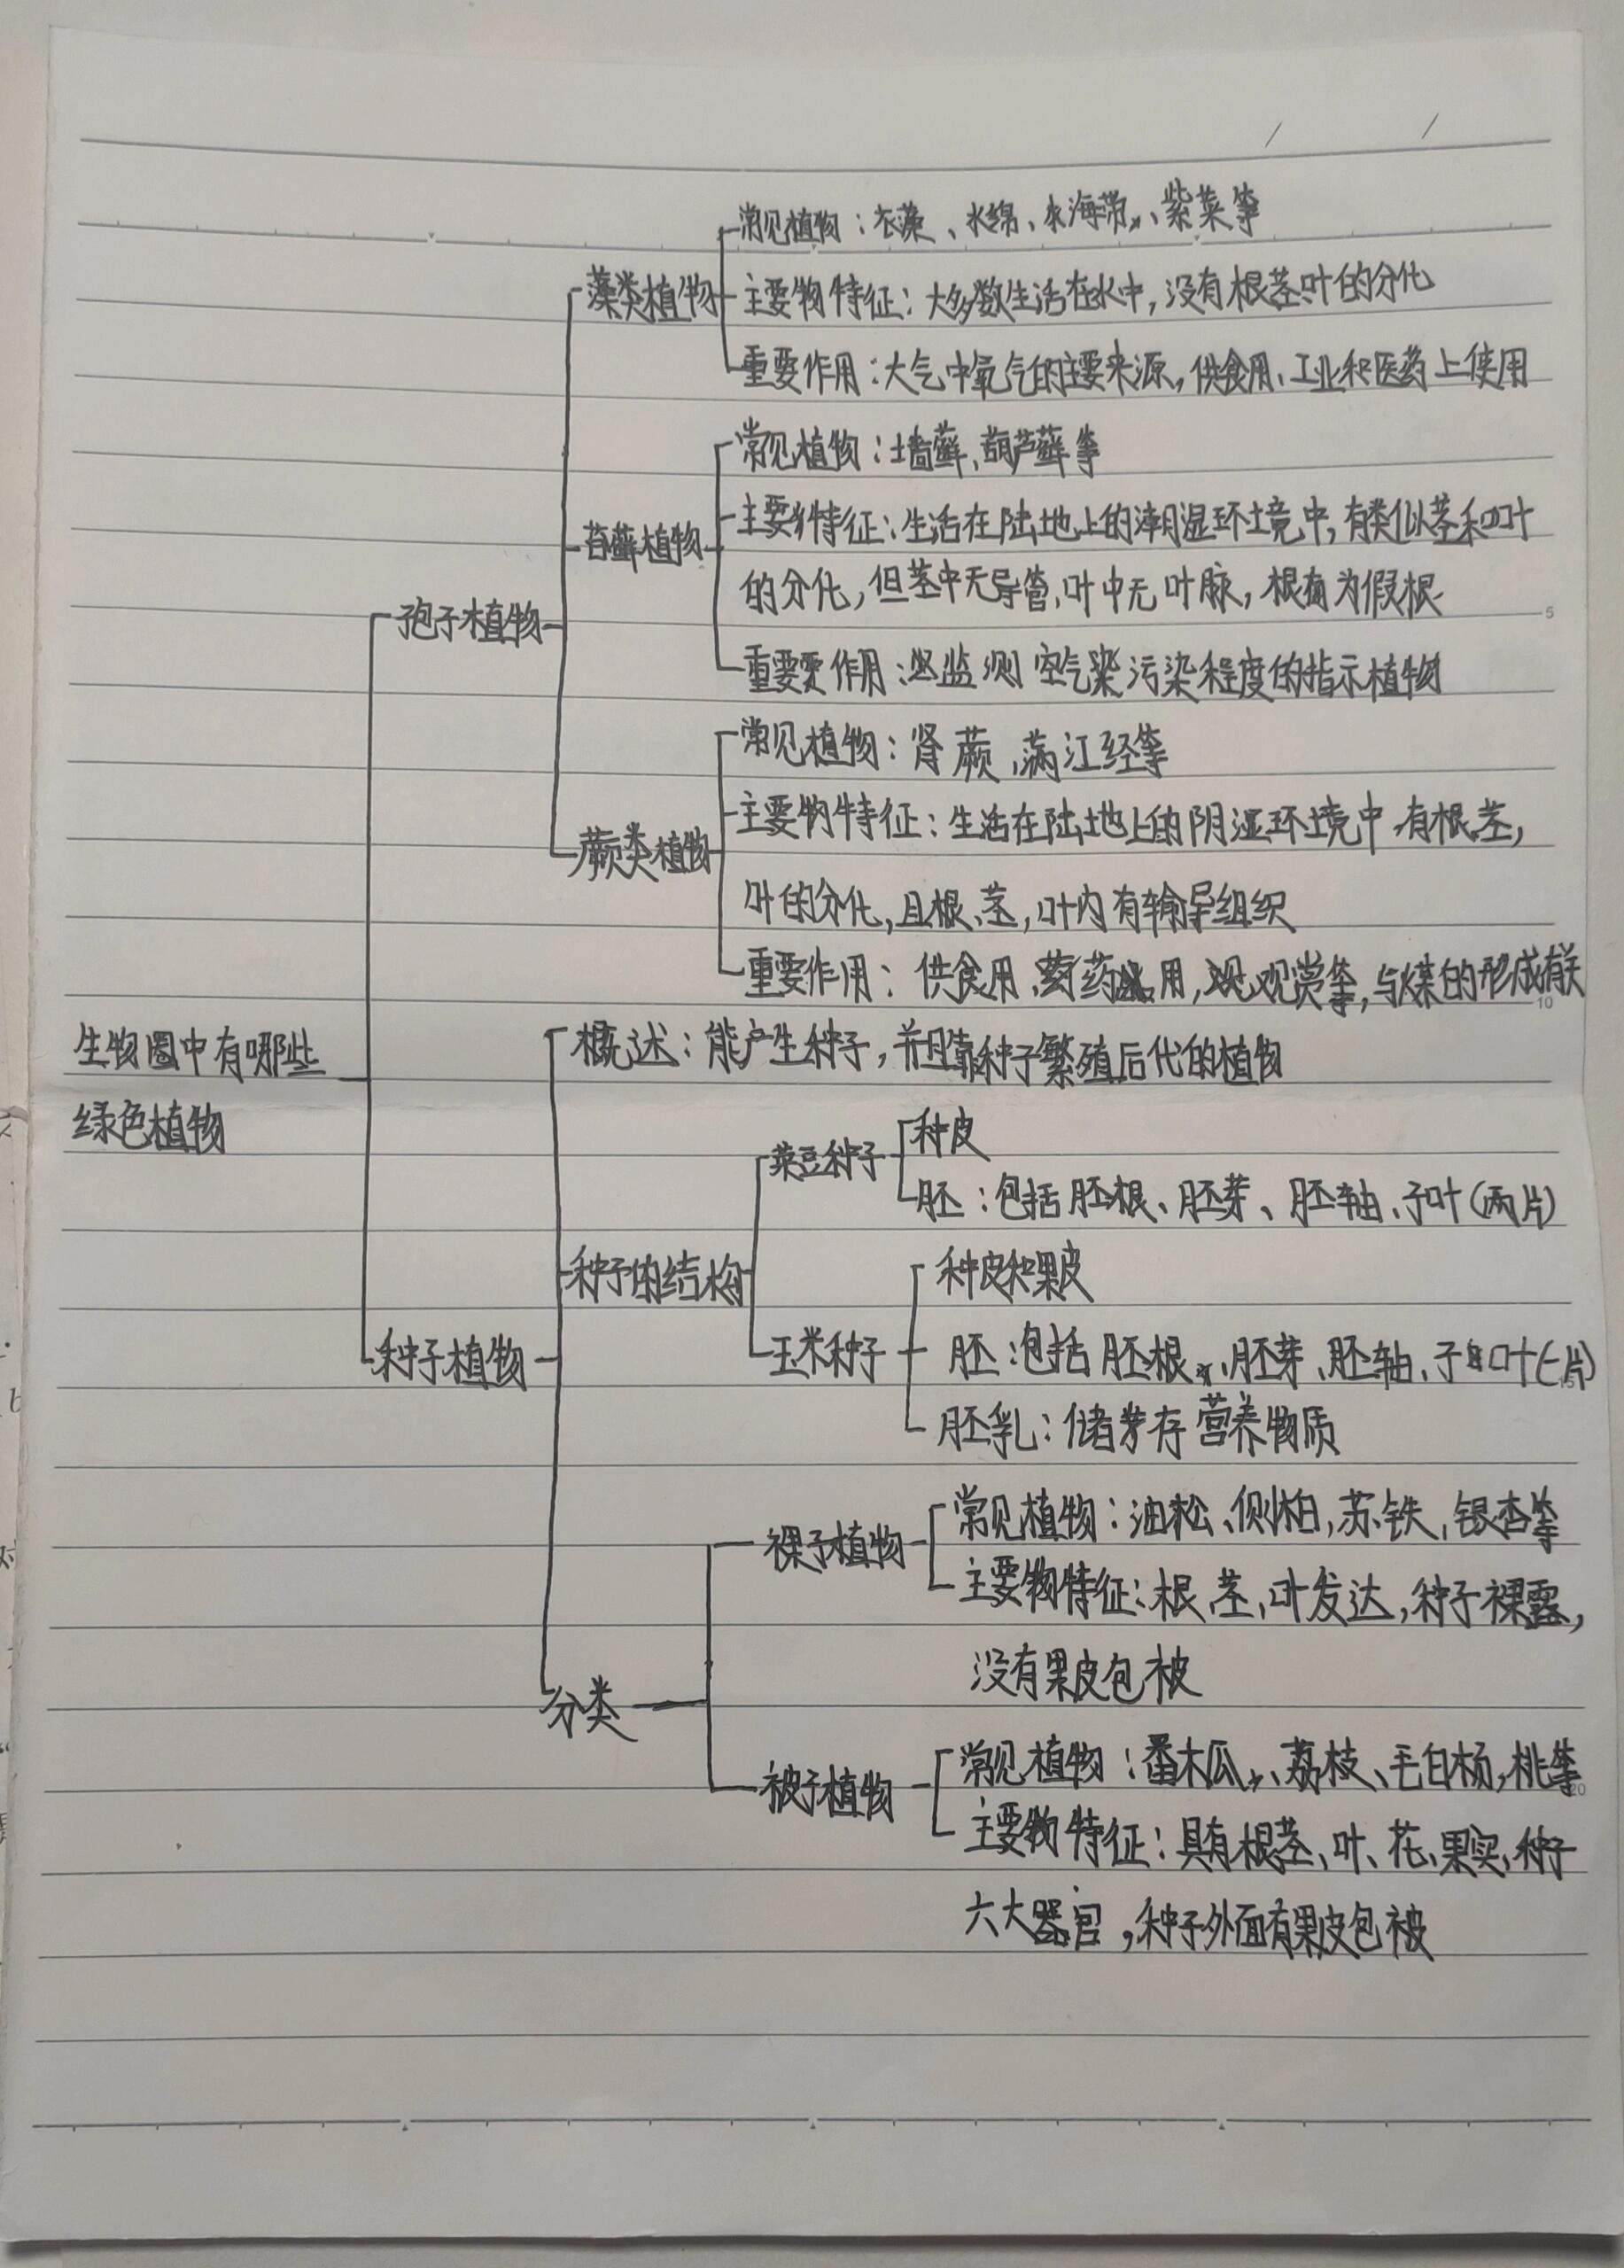 常见植物：衣藻、水绵、海带、紫菜等
藻类植物
主要特征：大多数生活在水中，没有根茎叶的分化
重要作用：大气中氧气的主要来源，供食用、工业和医药上使用
常见植物：墙藓、葫芦藓等
主要特征：生活在陆地上的潮湿环境中，有类似茎和叶
苔藓植物
的分化，但茎中无导管，叶中无叶脉，根为假根
孢子植物
重要作用：监测空气污染程度的指示植物
常见植物：肾蕨、满江红等
主要特征：生活在陆地上的阴湿环境中，有根、茎，
蕨类植物
叶的分化，且根、茎，叶内有输导组织
重要作用：供食用、药用，观赏等，与煤的形成有关
生物圈中有哪些
绿色植物
概述：能产生种子，并且靠种子繁殖后代的植物
菜豆种子
种皮
胚：包括胚根、胚芽、胚轴、子叶（两片）
种子的结构
种皮和果皮
种子植物
玉米种子
胚：包括胚根、胚芽、胚轴、子叶（一片）
胚乳：储存营养物质
常见植物：油松、侧柏，苏铁，银杏等
裸子植物
主要特征：根、茎、叶发达，种子裸露，
没有果皮包被
分类
常见植物：番木瓜、荔枝、毛白杨，桃等
被子植物
主要特征：具有根茎、叶、花、果实，种子
六大器官，种子外面有果皮包被
5
10
15
20